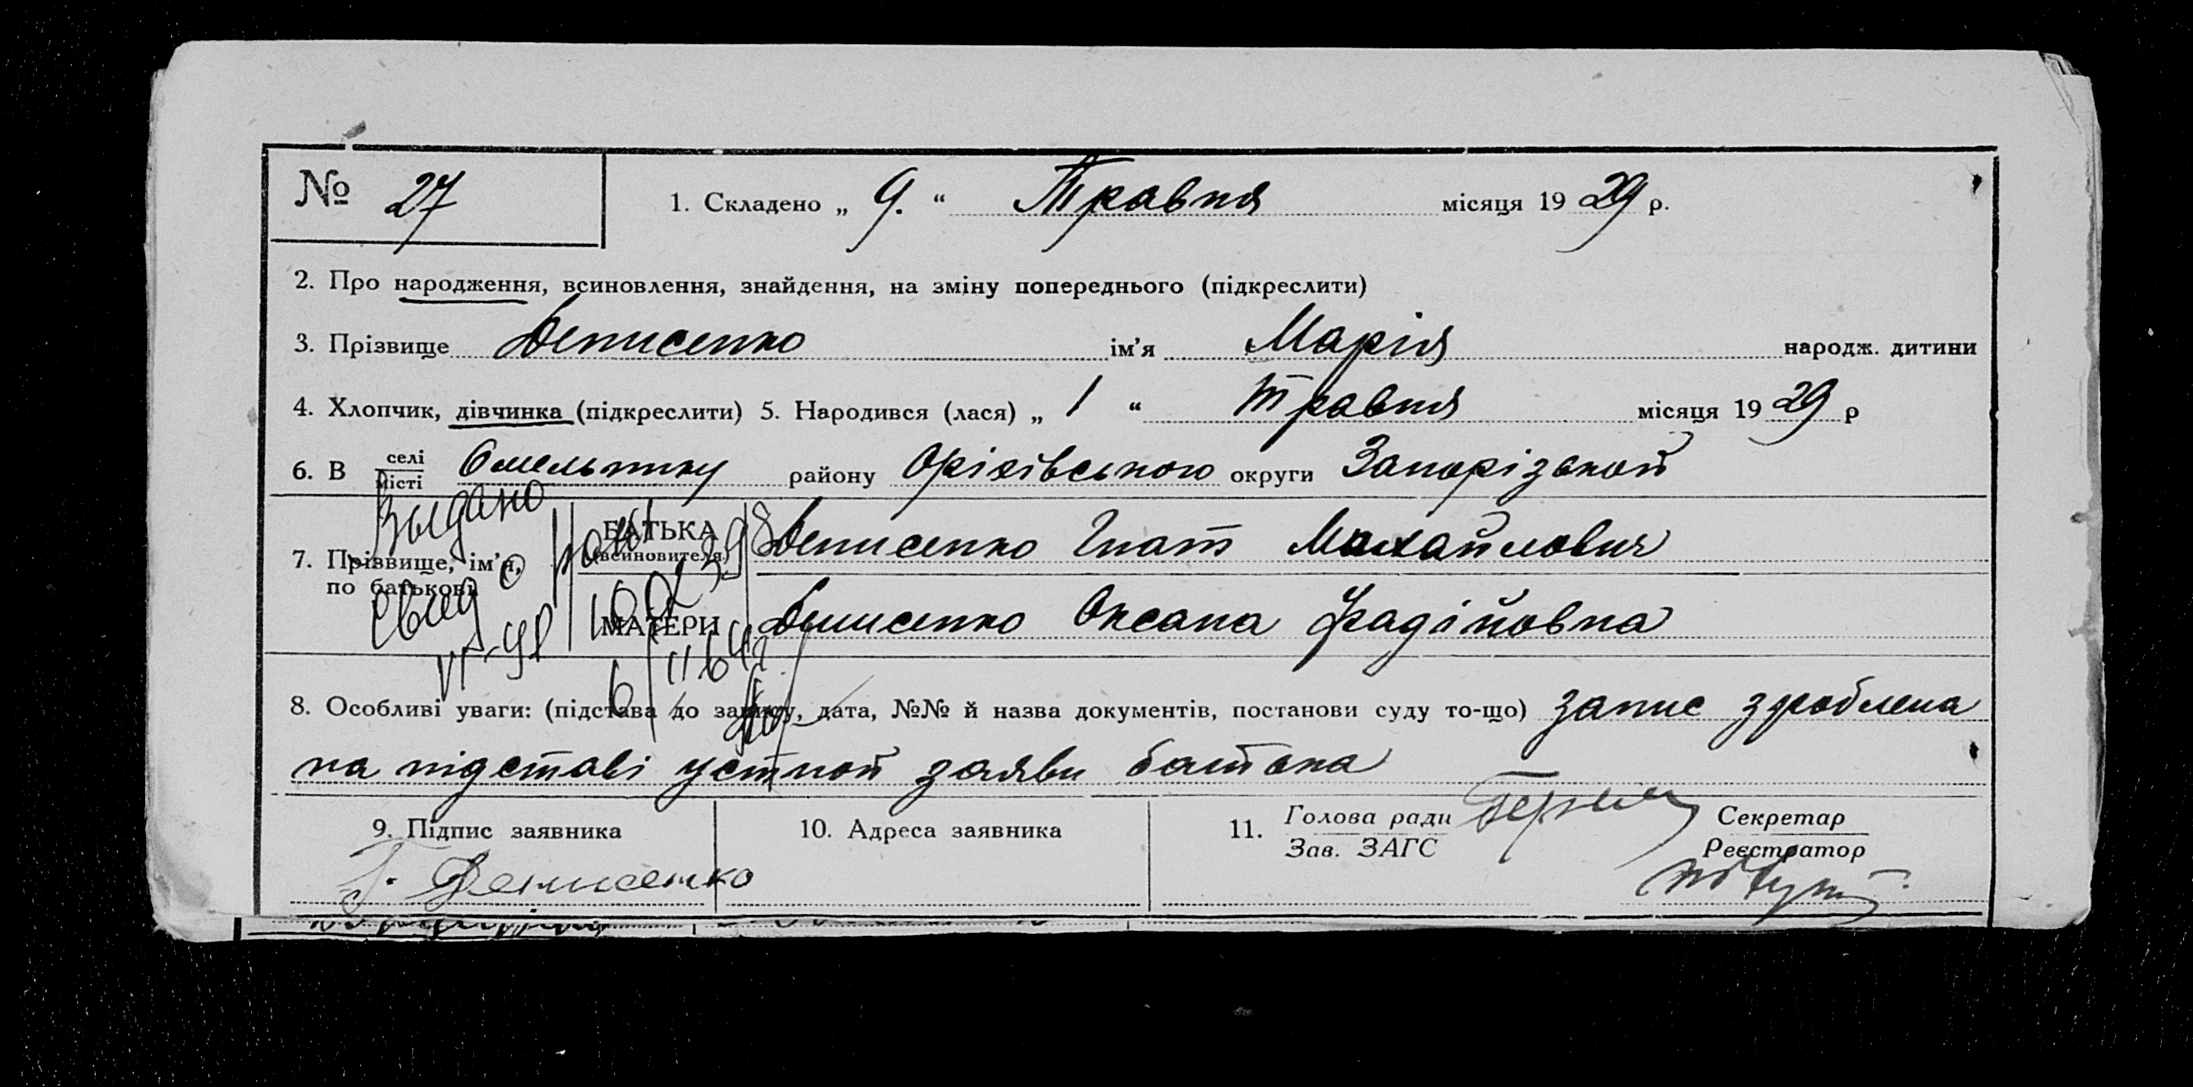 № 27 1. Складено „ 9. “ Травня місяця 19 29 р.
2. Про народження, всиновлення, знайдення, на зміну попереднього (підкреслити)
3. Прізвище Денисенко ім’я Марія народж. дитини
4. Хлопчик, дівчинка (підкреслити) 5. Народився (лася) „ 1 “ травня місяця 19 29 р
6. В селі місті Омельнику району Оріхівського округи Запорізькой
Выдано
7. Прізвище, ім’я, по батькові БАТЬКА (всиновителя) Денисенко Гнат Михайлович
свид о
МАТЕРИ Денисенко Оксана Фадійовна
8. Особливі уваги: (підстава до запису, дата, №№ й назва документів, постанови суду то-що) запис зроблена
на підставі устной заяви батька
9. Підпис заявника 10. Адреса заявника 11. Голова ради Секретар
Зав. ЗАГС Реєстратор
Г. Денисенко